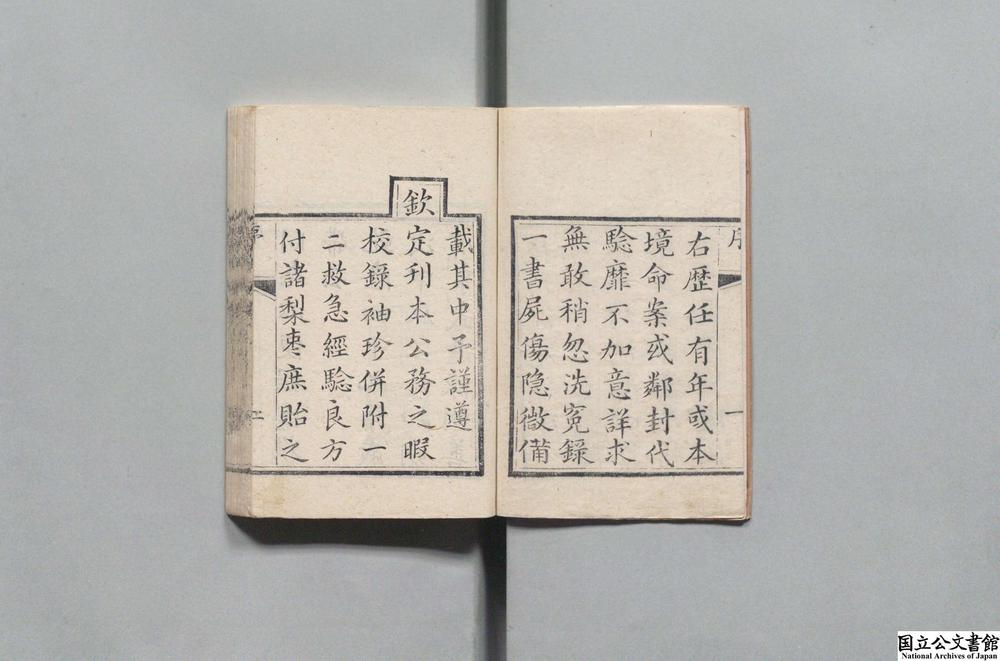 序
一
右歷任有年或本
境命案或鄰封代
驗靡不加意詳求
無敢稍忽洗冤錄
一書屍傷隐微備
載其中予謹遵
欽定刊本公務之暇
校錄袖珍併附一
二救急經驗良方
付諸梨枣庶貽之
国立公文書館
National Archives of Japan